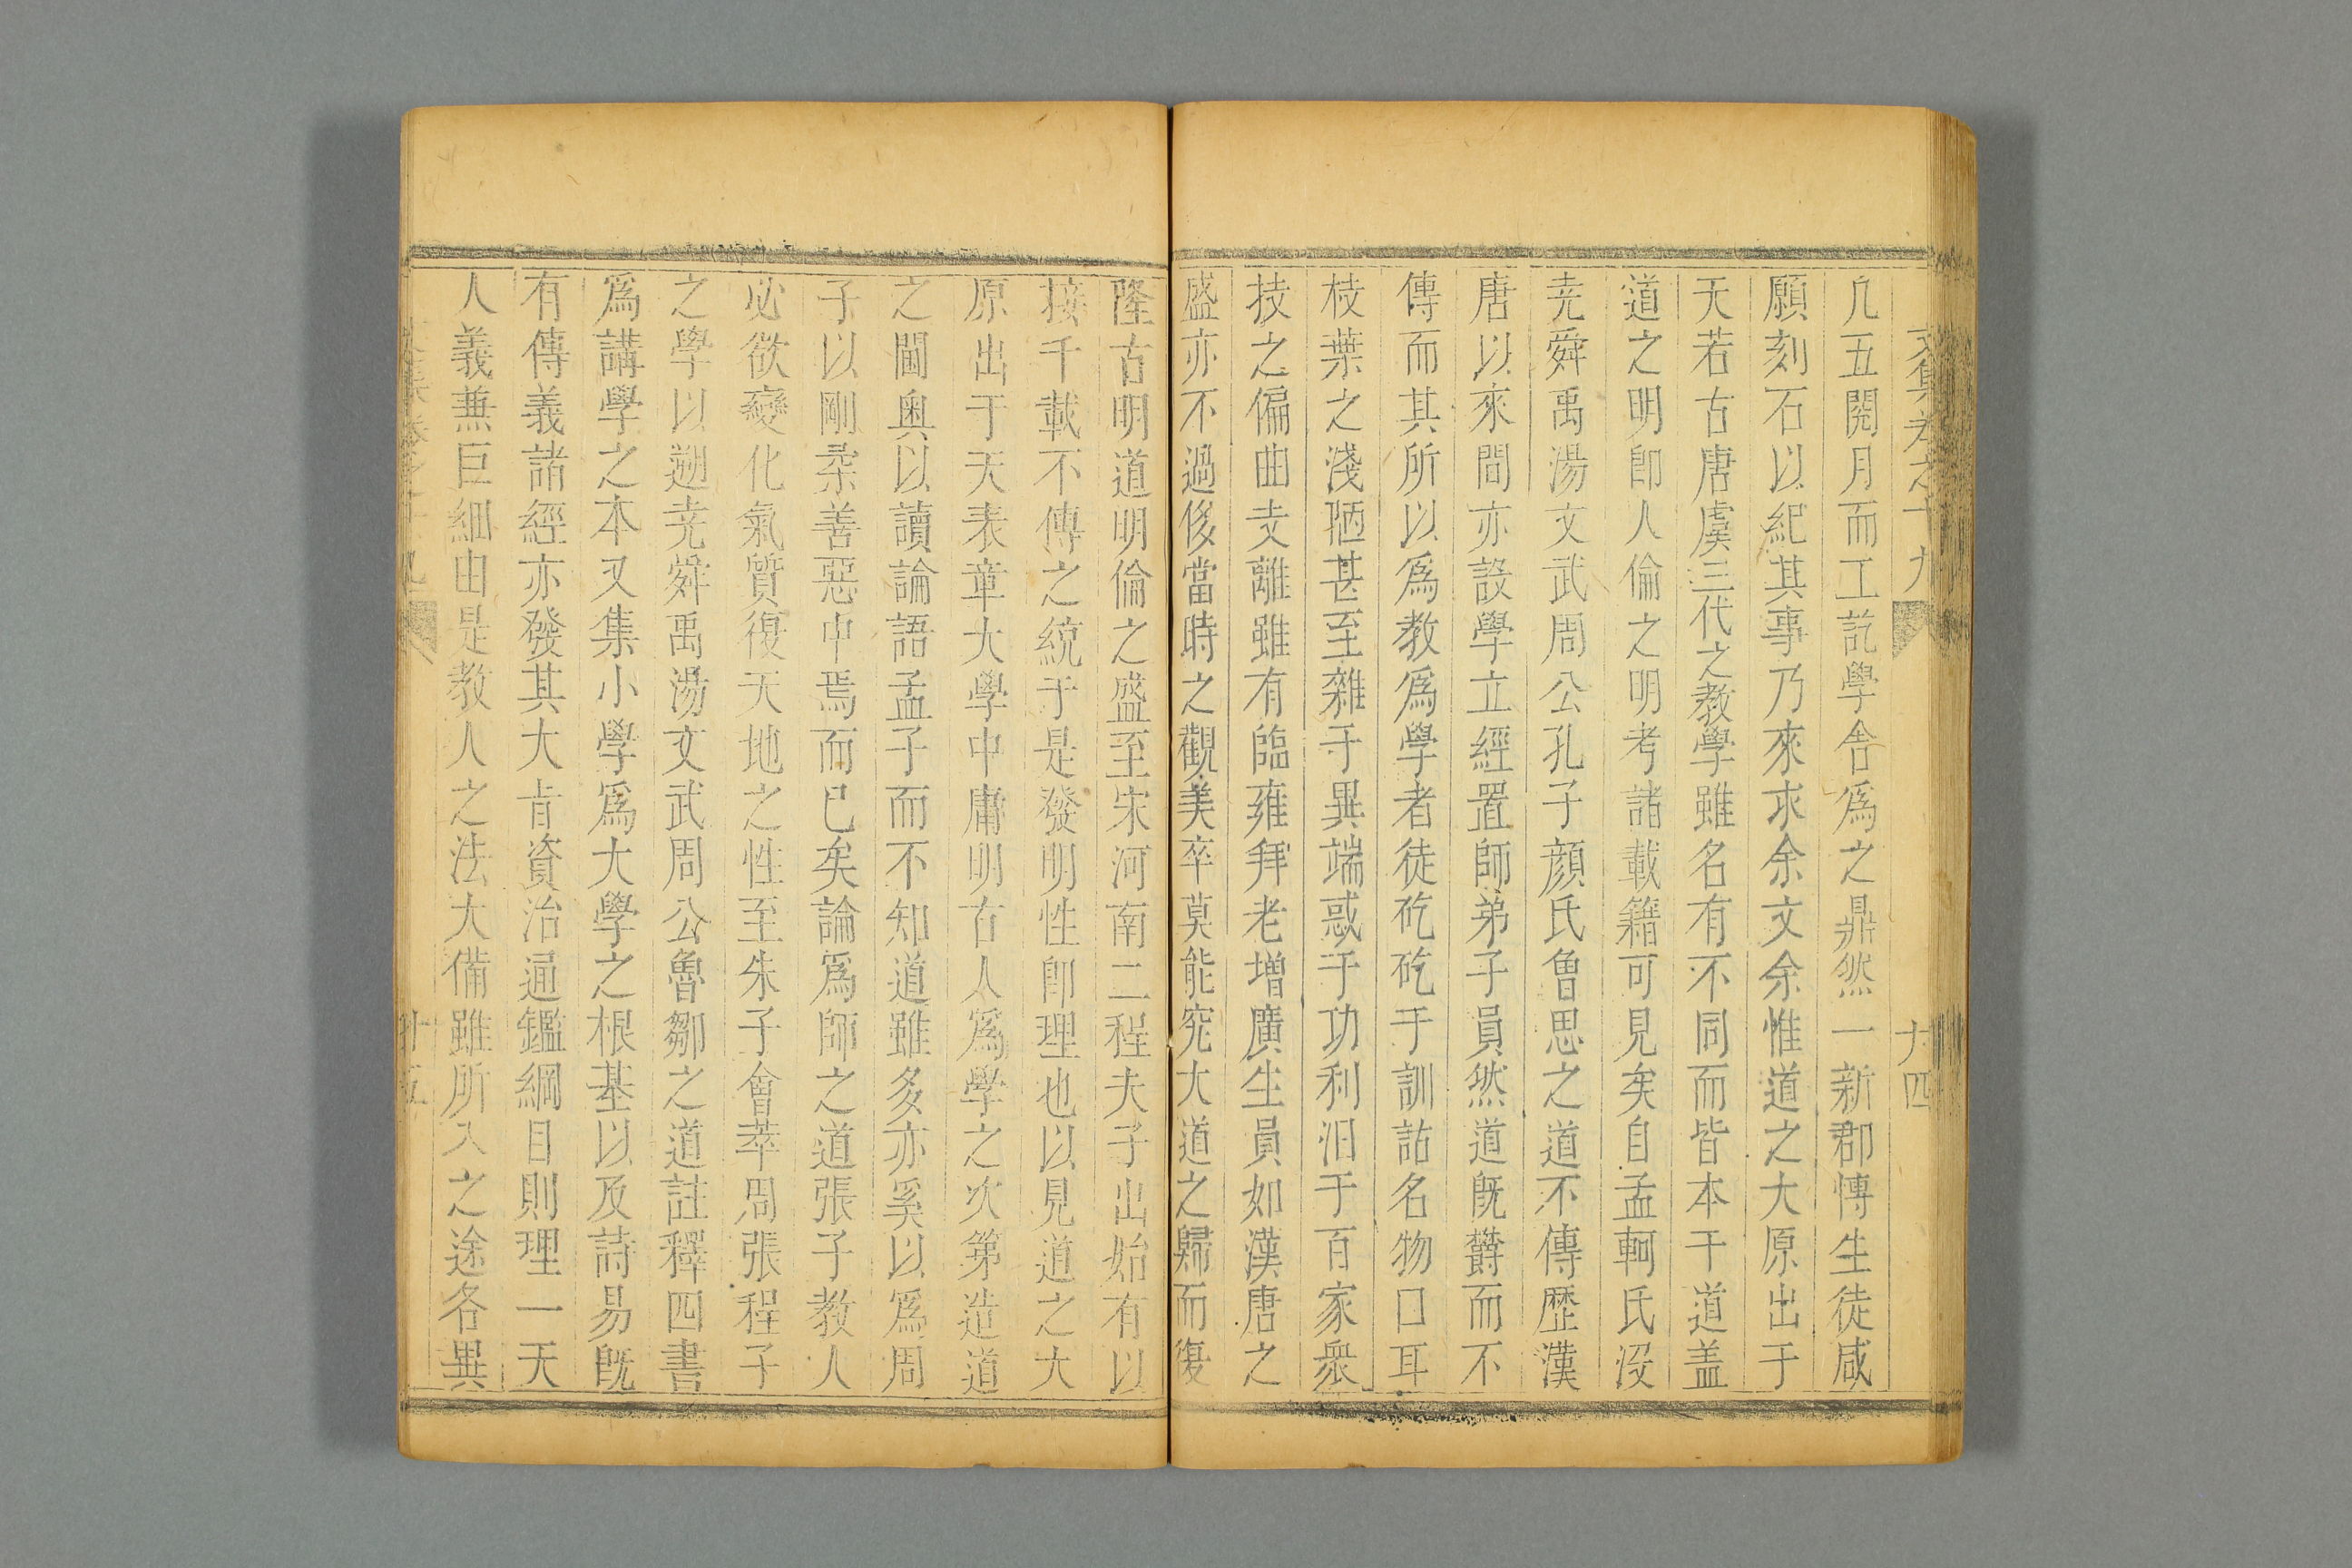 文集卷之十九 十四
几五閱月而工訖學舍爲之鼎然一新郡愽生徒咸
願刻石以紀其事乃來求余文余惟道之大原出于
天若古唐虞三代之教學雖名有不同而皆本于道盖
道之明卽人倫之明考諸載籍可見矣自孟軻氏沒
尭舜禹湯文武周公孔子顏氏曾思之道不傳歷漢
唐以來間亦設學立經置師弟子員然道旣欝而不
傳而其所以爲教爲學者徒矻矻于訓詁名物口耳
枝葉之淺陋甚至雜于異端惑于功利汨于百家衆
技之偏曲支離雖有臨雍拜老增廣生員如漢唐之
盛亦不過侈當時之觀美卒莫能究大道之歸而復
隆古明道明倫之盛至宋河南二程夫子出始有以
接千載不傳之統于是發明性卽理也以見道之大
原出于天表章大學中庸明古人爲學之次第造道
之閫奥以讀論語孟子而不知道雖多亦奚以爲周
子以剛柔善惡中焉而已矣論爲師之道張子教人
必欲變化氣質復天地之性至朱子會萃周張程子
之學以遡尭舜禹湯文武周公魯鄒之道註釋四書
爲講學之本又集小學爲大學之根基以及詩易旣
有傳義諸經亦發其大旨資治通鑑綱目則理一天
人義兼巨細由是教人之法大備雖所入之途各異
文集卷之十九 十五